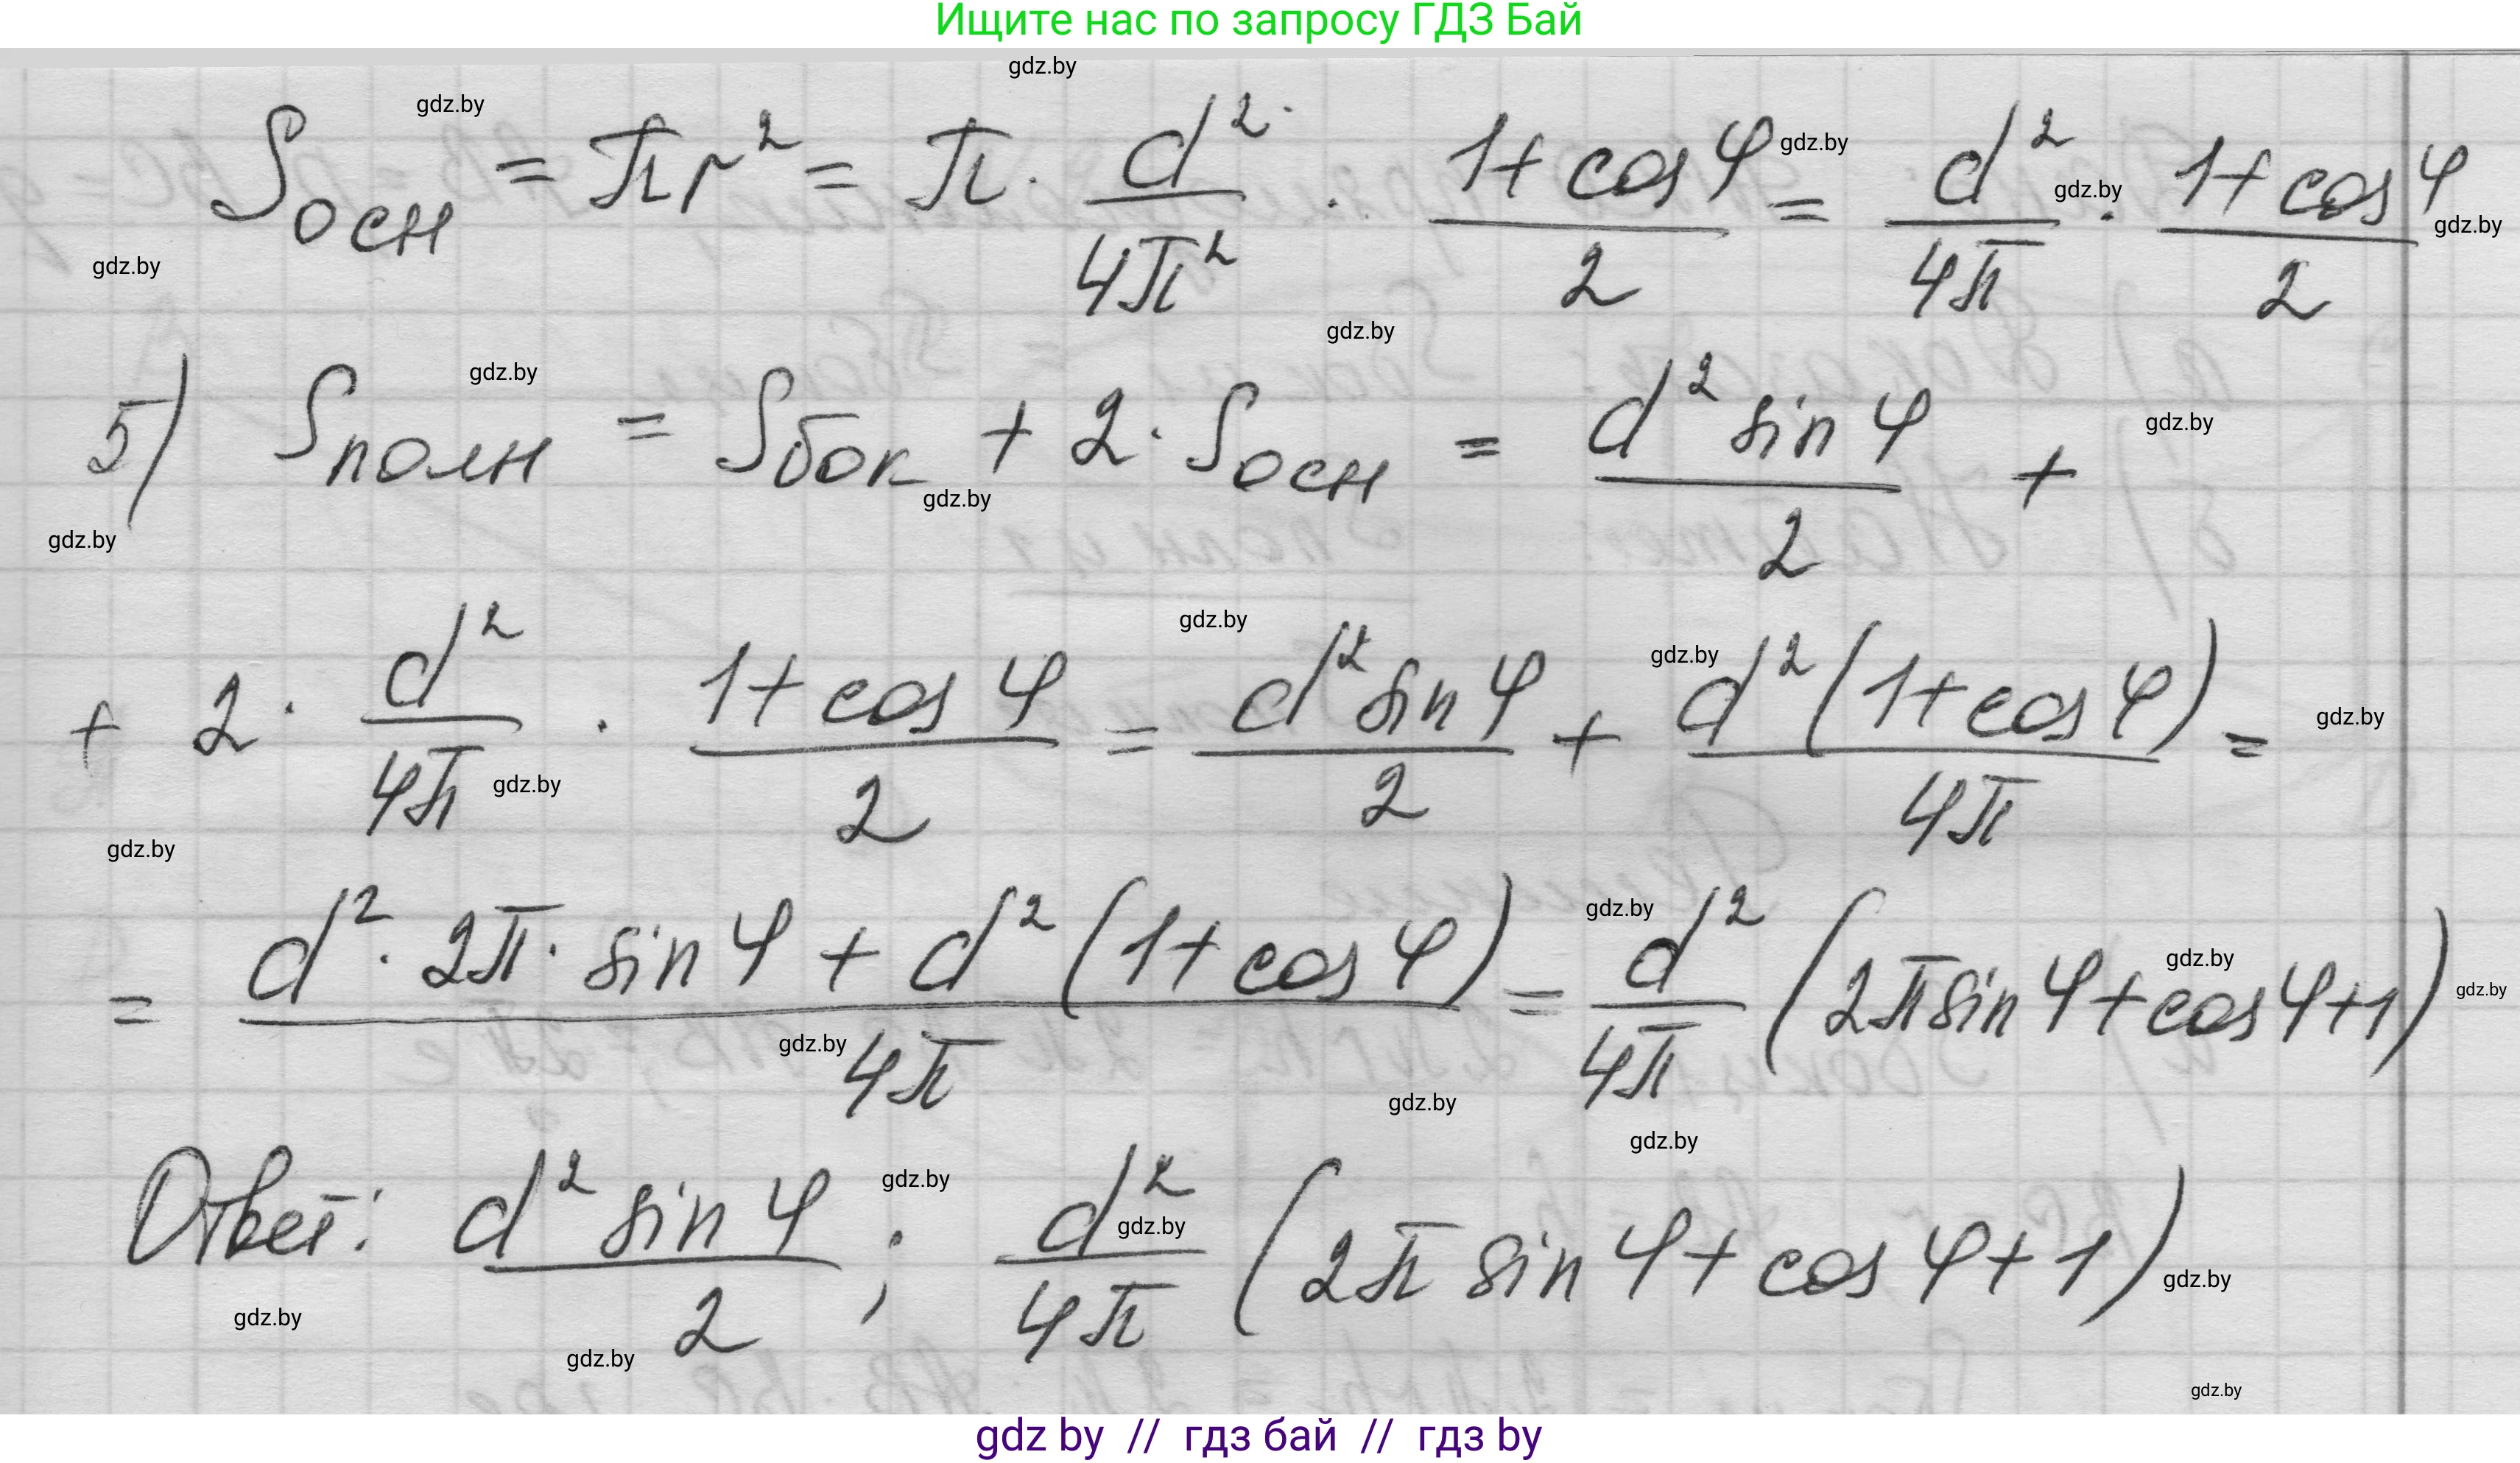 Ищите нас по запросу ГДЗ Бай
gdz.by
gdz.by
Sосн = πr² = π · d²/4π² · (1+cos φ)/2 = d²/4π · (1+cos φ)/2
gdz.by
gdz.by
gdz.by
gdz.by
gdz.by
gdz.by
5) Sполн = Sбок + 2 · Sосн = d² sin φ/2 +
gdz.by
gdz.by
gdz.by
gdz.by
+ 2 · d²/4π · (1+cos φ)/2 = d² sin φ/2 + d²(1+cos φ)/4π =
gdz.by
gdz.by
gdz.by
gdz.by
gdz.by
= (d² · 2π · sin φ + d²(1+cos φ))/4π = d²/4π (2π sin φ + cos φ + 1)
gdz.by
gdz.by
gdz.by
gdz.by
gdz.by
gdz.by
Ответ: d² sin φ/2 ; d²/4π (2π sin φ + cos φ + 1)
gdz.by
gdz.by
gdz.by
gdz.by
gdz.by
gdz.by
gdz by // гдз бай // гдз by